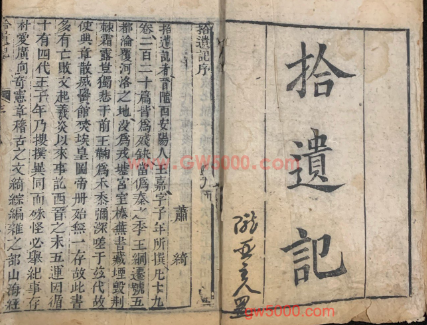 拾遺記
拾遺記序
蕭綺
拾遺記者晉隴西安陽人王嘉字子年所撰凡十九
卷二百二十篇皆為殘缺當偽秦之季王綱遷號五
都淪覆河洛之地沒為戎墟宮室榛蕪書藏堙毀荆
棘霜露豈獨悲于前王鞠為禾黍彌深嗟于茲代故
使典章散滅黌館焚埃皇圖帝冊殆無一存故此書
多有亡散文起羲炎以來事訖西晉之末五運因循
十有四代王子年乃搜撰異同而殊怪必舉紀事存
朴愛廣尚奇憲章稽古之文綺綜編雜之部山海經
www.GW5000.com
gw5000.com